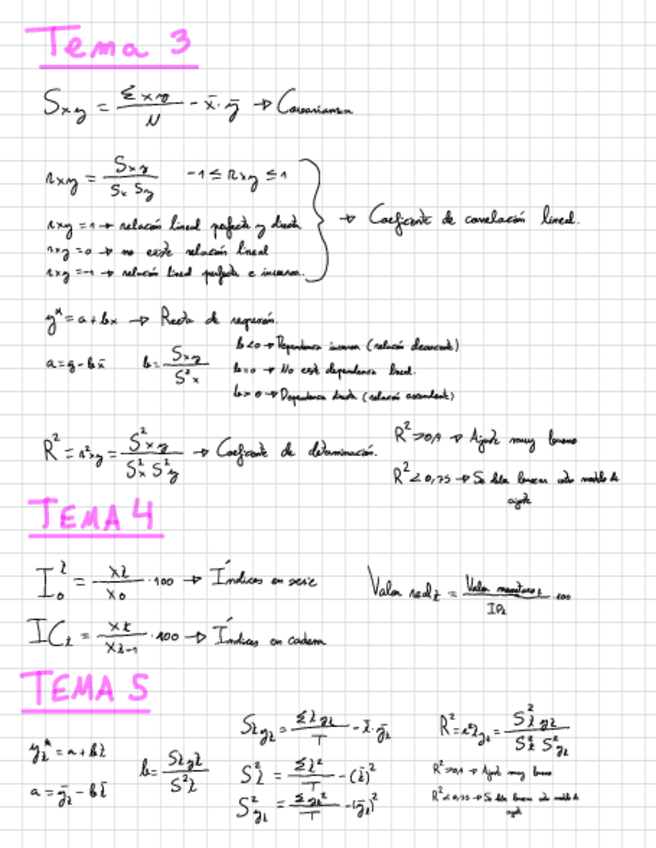 Tema 3
Sxy = Σxy / N - x̄·ȳ → Covarianza
rxy = Sxy / Sx Sy   -1 ≤ rxy ≤ 1
rxy = 1 → relación lineal perfecta y directa
rxy = 0 → no existe relación lineal
rxy = -1 → relación lineal perfecta e inversa.
→ Coeficiente de correlación lineal.
y* = a + bx → Recta de regresión.
a = ȳ - bx̄   b = Sxy / S²x
b<0 → Dependencia inversa (relación decreciente)
b=0 → No est dependencia lineal.
b>0 → Dependencia directa (relación ascendente)
R² = r²xy = S²xy / S²x S²y → Coeficiente de determinación.
R² >0,9 → Ajuste muy bueno
R² <0,75 → Se debe buscar otro modelo de
ajuste
TEMA 4
I₀ᵗ = xt / x₀ · 100 → Índices en serie
Valor realt = Valor monetariot / IPt · 100
ICt = xt / xt-1 · 100 → Índices en cadena
TEMA 5
yt* = a + bt
a = ȳt - bt̄
b = Styt / S²t
Styt = Σtyt / T - t̄·ȳt
S²t = Σt² / T - (t̄)²
S²yt = Σyt² / T - (ȳt)²
R² = r²tyt = S²tyt / S²t S²yt
R² >0,9 → Ajuste muy bueno
R² → Se debe buscar otro modelo de
ajuste